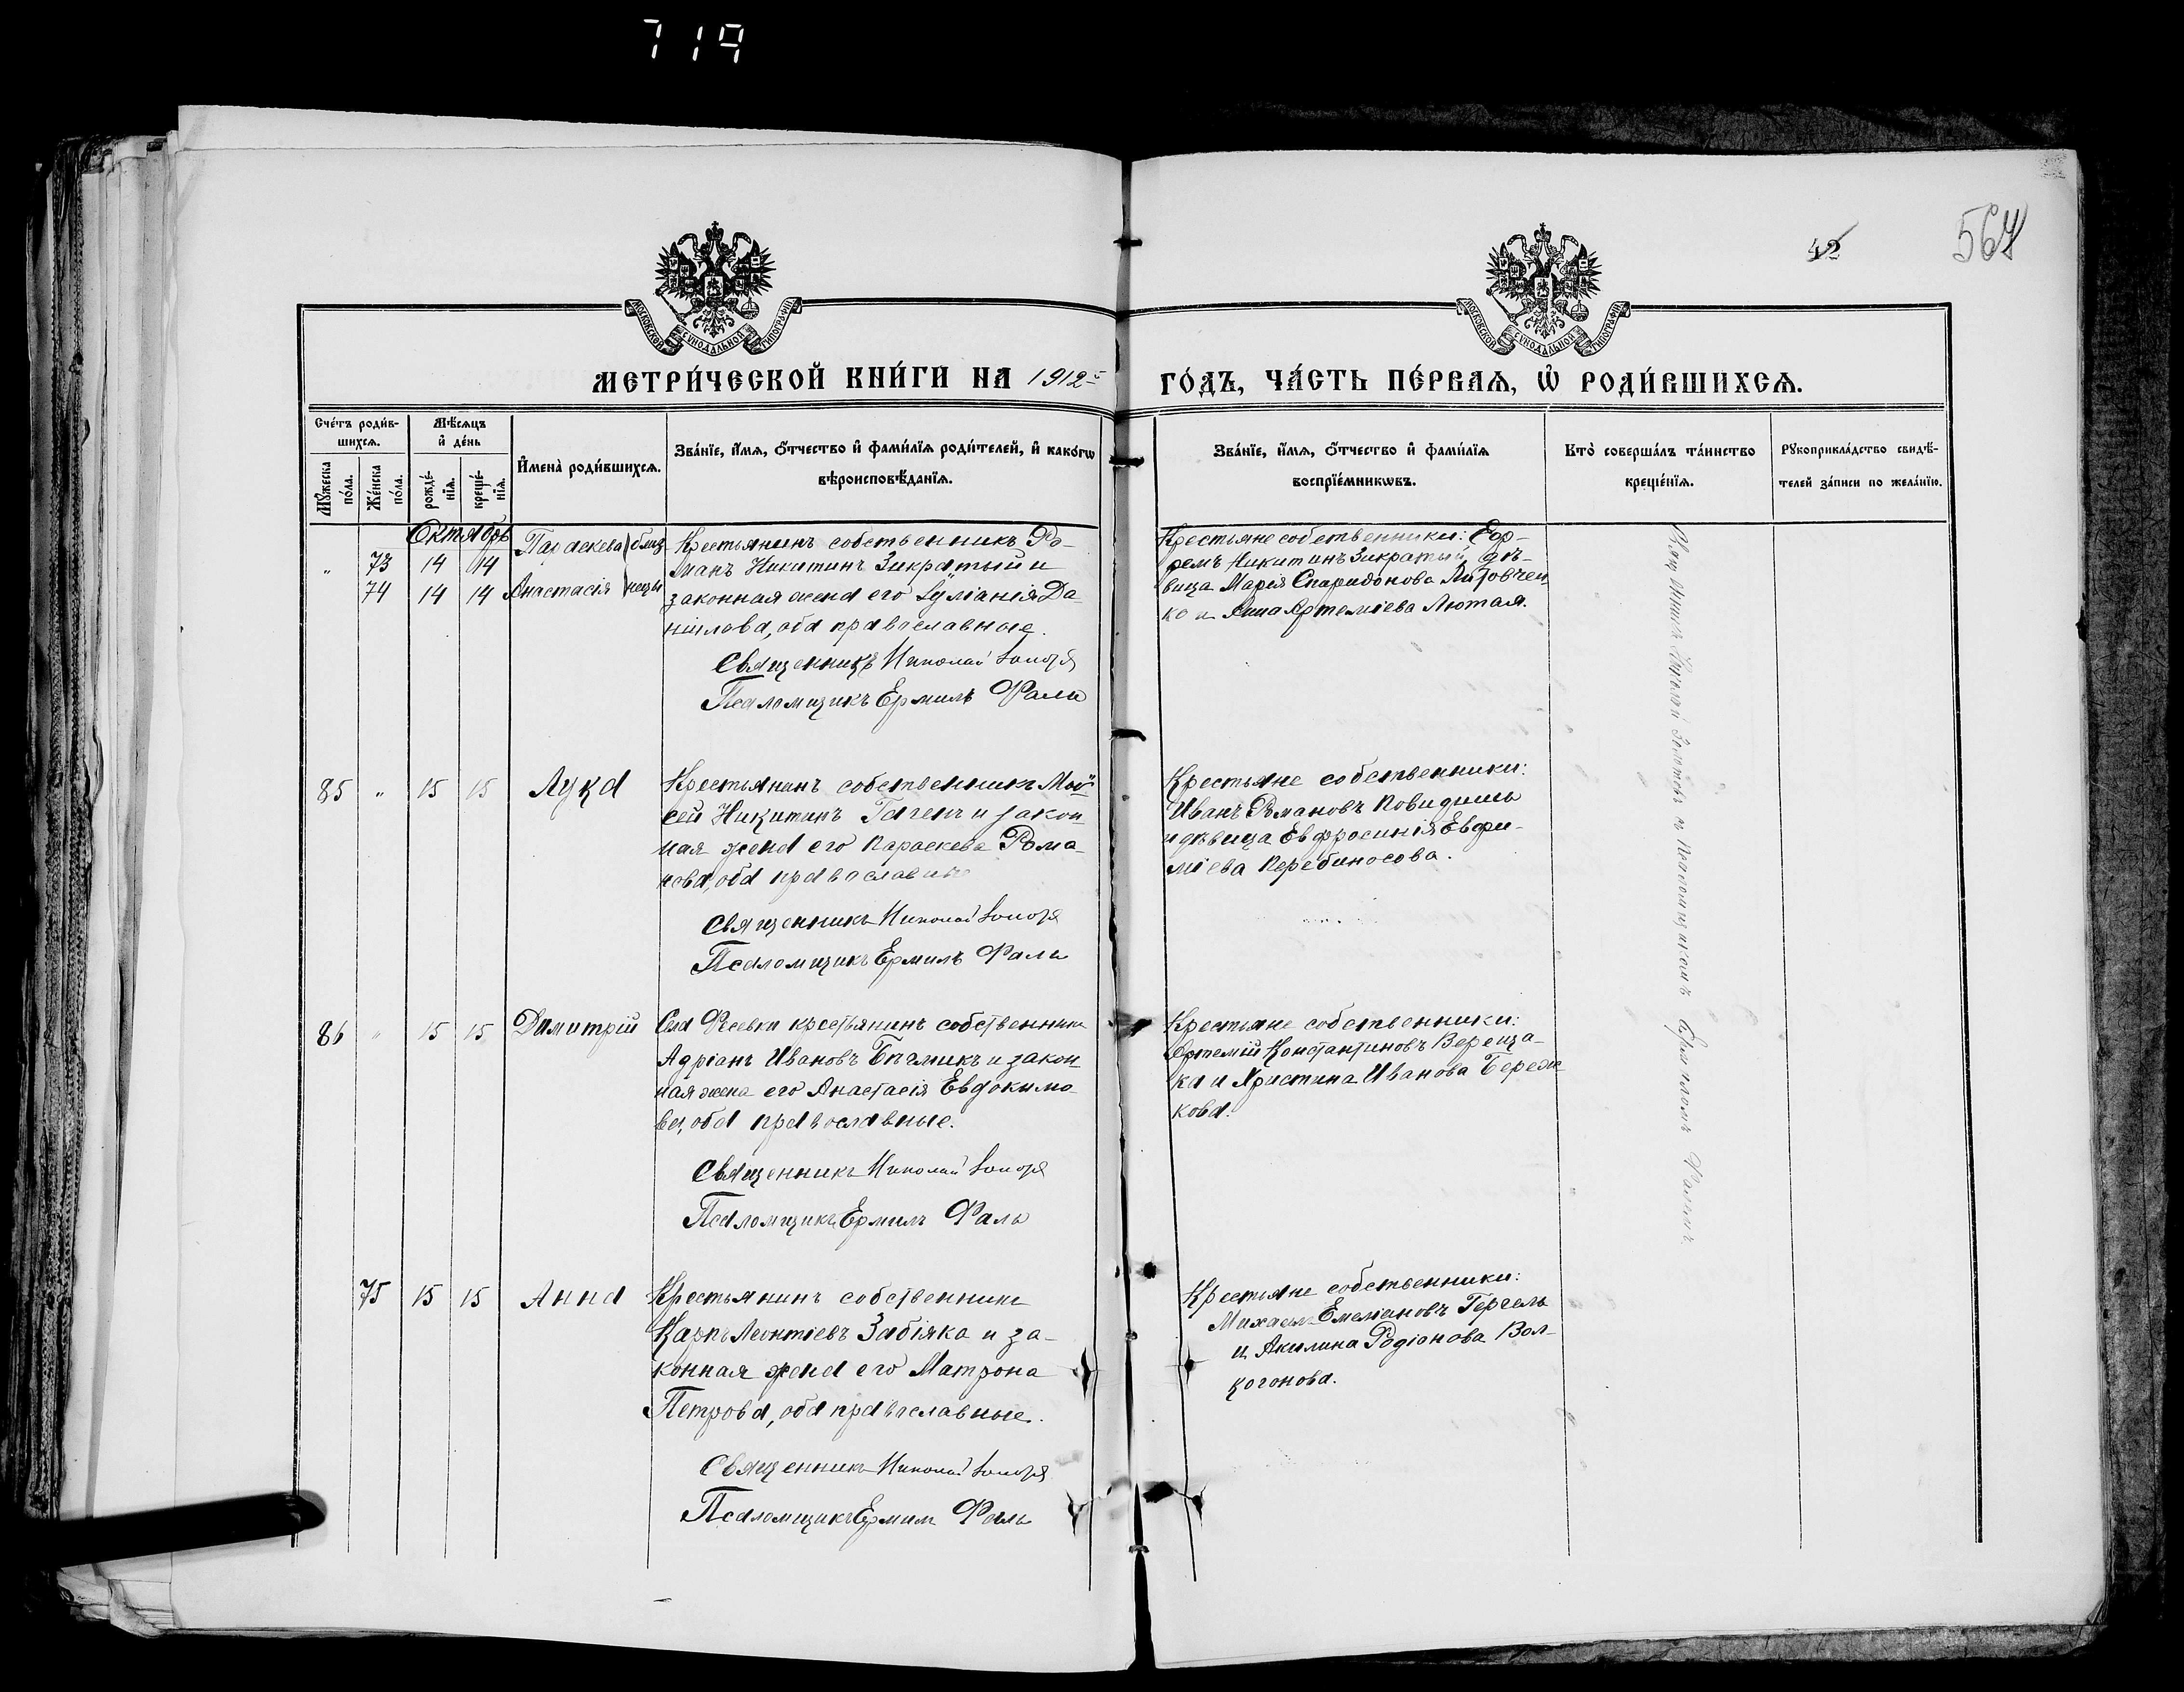 719
42
564
МОСКОВСКОЙ СѴНОДАЛЬНОЙ ТИПОГРАФІИ
МОСКОВСКОЙ СѴНОДАЛЬНОЙ ТИПОГРАФІИ
МЕТРИ́ЧЕСКОЙ КНИ́ГИ НА 1912 ГО́ДЪ, ЧА́СТЬ ПЕ́РВАѦ, Ѡ҆ РОДИ́ВШИХСѦ.
Сче́тъ роди́в-
шихсѧ.
Мꙋ́жеска по́ла.
Же́нска по́ла.
Мѣ́сѧцъ
и҆ де́нь
рожде́-
нїѧ.
креще́-
нїѧ.
И҆мена̀ роди́вшихсѧ.
Зва́нїе, и҆́мѧ, ѻ҆́тчество и҆ фами́лїѧ роди́телей, и҆ како́гѡ
вѣроисповѣ́данїѧ.
Зва́нїе, и҆́мѧ, ѻ҆́тчество и҆ фами́лїѧ
воспрїе́мникѡвъ.
Кто̀ соверша́лъ та́инство
креще́нїѧ.
Рꙋкоприкла́дство свидѣ́-
телей за́писи по жела́нїю.
Октябрь
„ 73 14 14 Параскева близ
74 14 14 Анастасія нецы
Крестьянинъ собственникъ Ро-
манъ Никитинъ Зикратый и
законная жена его Іуліанія Да-
ніилова, оба православные.
Священникъ Николай
Псаломщикъ Ермилъ Фаль
Крестьяне собственники: Еф-
ремъ Никитинъ Зикратый, дѣ-
вица Марія Спиридонова Литовчен
ко и Анна Артеміева Лютая.
85 „ 15 15 Лука
Крестьянинъ собственникъ Мои-
сей Никитинъ и закон
ная жена его Параскева Рома-
нова, оба православные
Священникъ Николай
Псаломщикъ Ермилъ Фаль
Крестьяне собственники:
Иванъ Романовъ
и дѣвица Евфросинія Евфи-
міева Перебиносова.
86 „ 15 15 Димитрій
Села крестьянинъ собственникъ
Адріанъ Ивановъ и закон
ная жена его Анастасія Евдокимо-
ва, оба православные.
Священникъ Николай
Псаломщикъ Ермилъ Фаль
Крестьяне собственники:
Артемій Константиновъ Вереща-
ка и Христина Иванова Береж
кова.
75 15 15 Анна
Крестьянинъ собственникъ
Карпъ Леонтіевъ Забіяка и за-
конная жена его Матрона
Петрова, оба православные.
Священникъ Николай
Псаломщикъ Ермилъ Фаль
Крестьяне собственники:
Михаилъ Емеліановъ Гергель
и Акилина Родіонова Вол-
когонова.
Николай съ Псаломщикомъ Ермиломъ Фалемъ